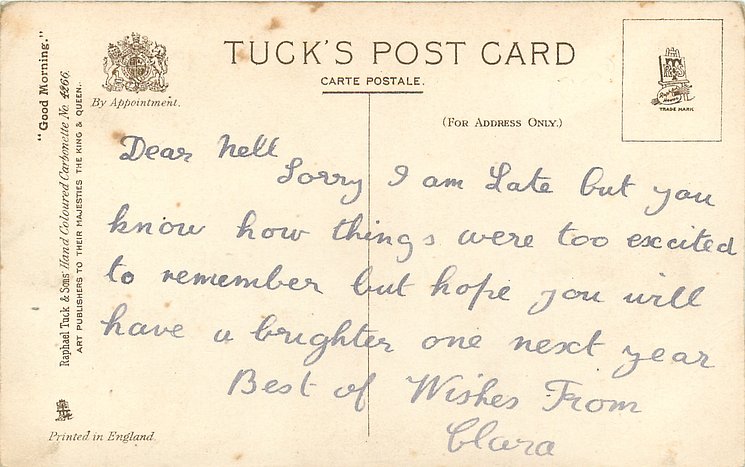 "Good Morning."
Raphael Tuck & Sons' Hand Coloured Carbonette No. 4266.
ART PUBLISHERS TO THEIR MAJESTIES THE KING & QUEEN.
By Appointment.
TUCK'S POST CARD
CARTE POSTALE.
(FOR ADDRESS ONLY.)
TRADE MARK
Dear Nell
Sorry I am Late but you
know how things were too excited
to remember but hope you will
have a brighter one next year
Best of Wishes From
Clara
Printed in England.